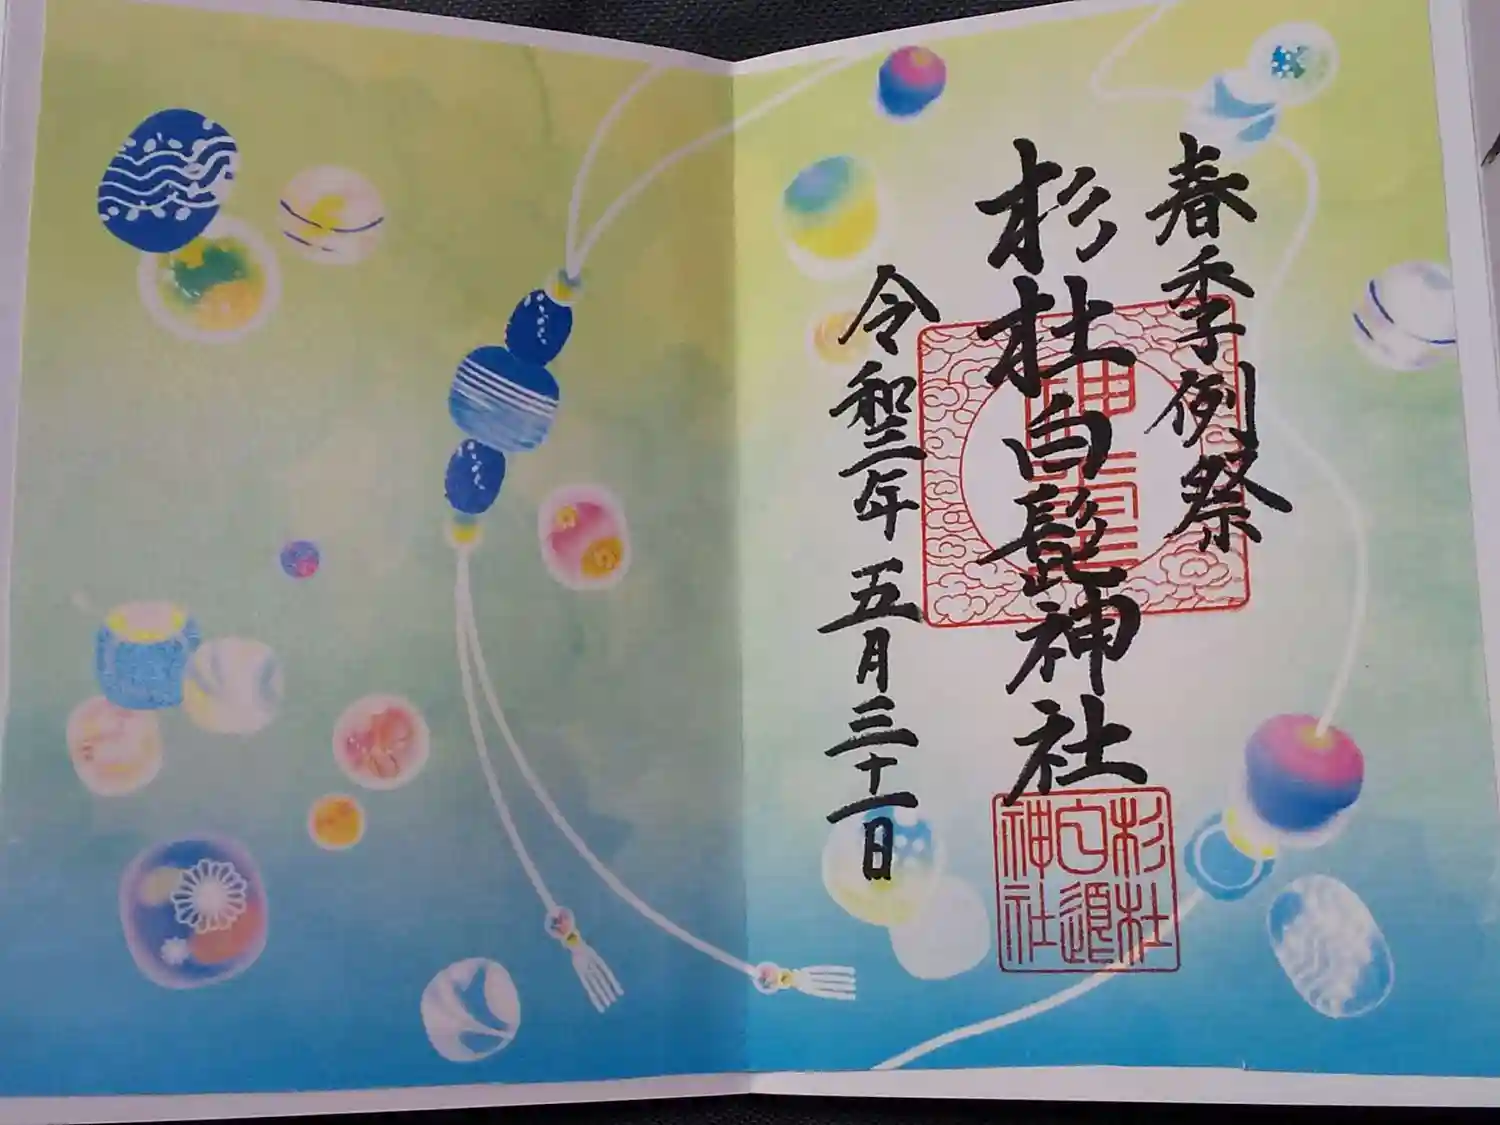 春季例祭
杉杜白髭神社
令和三年五月三十一日
杉杜
白
神社